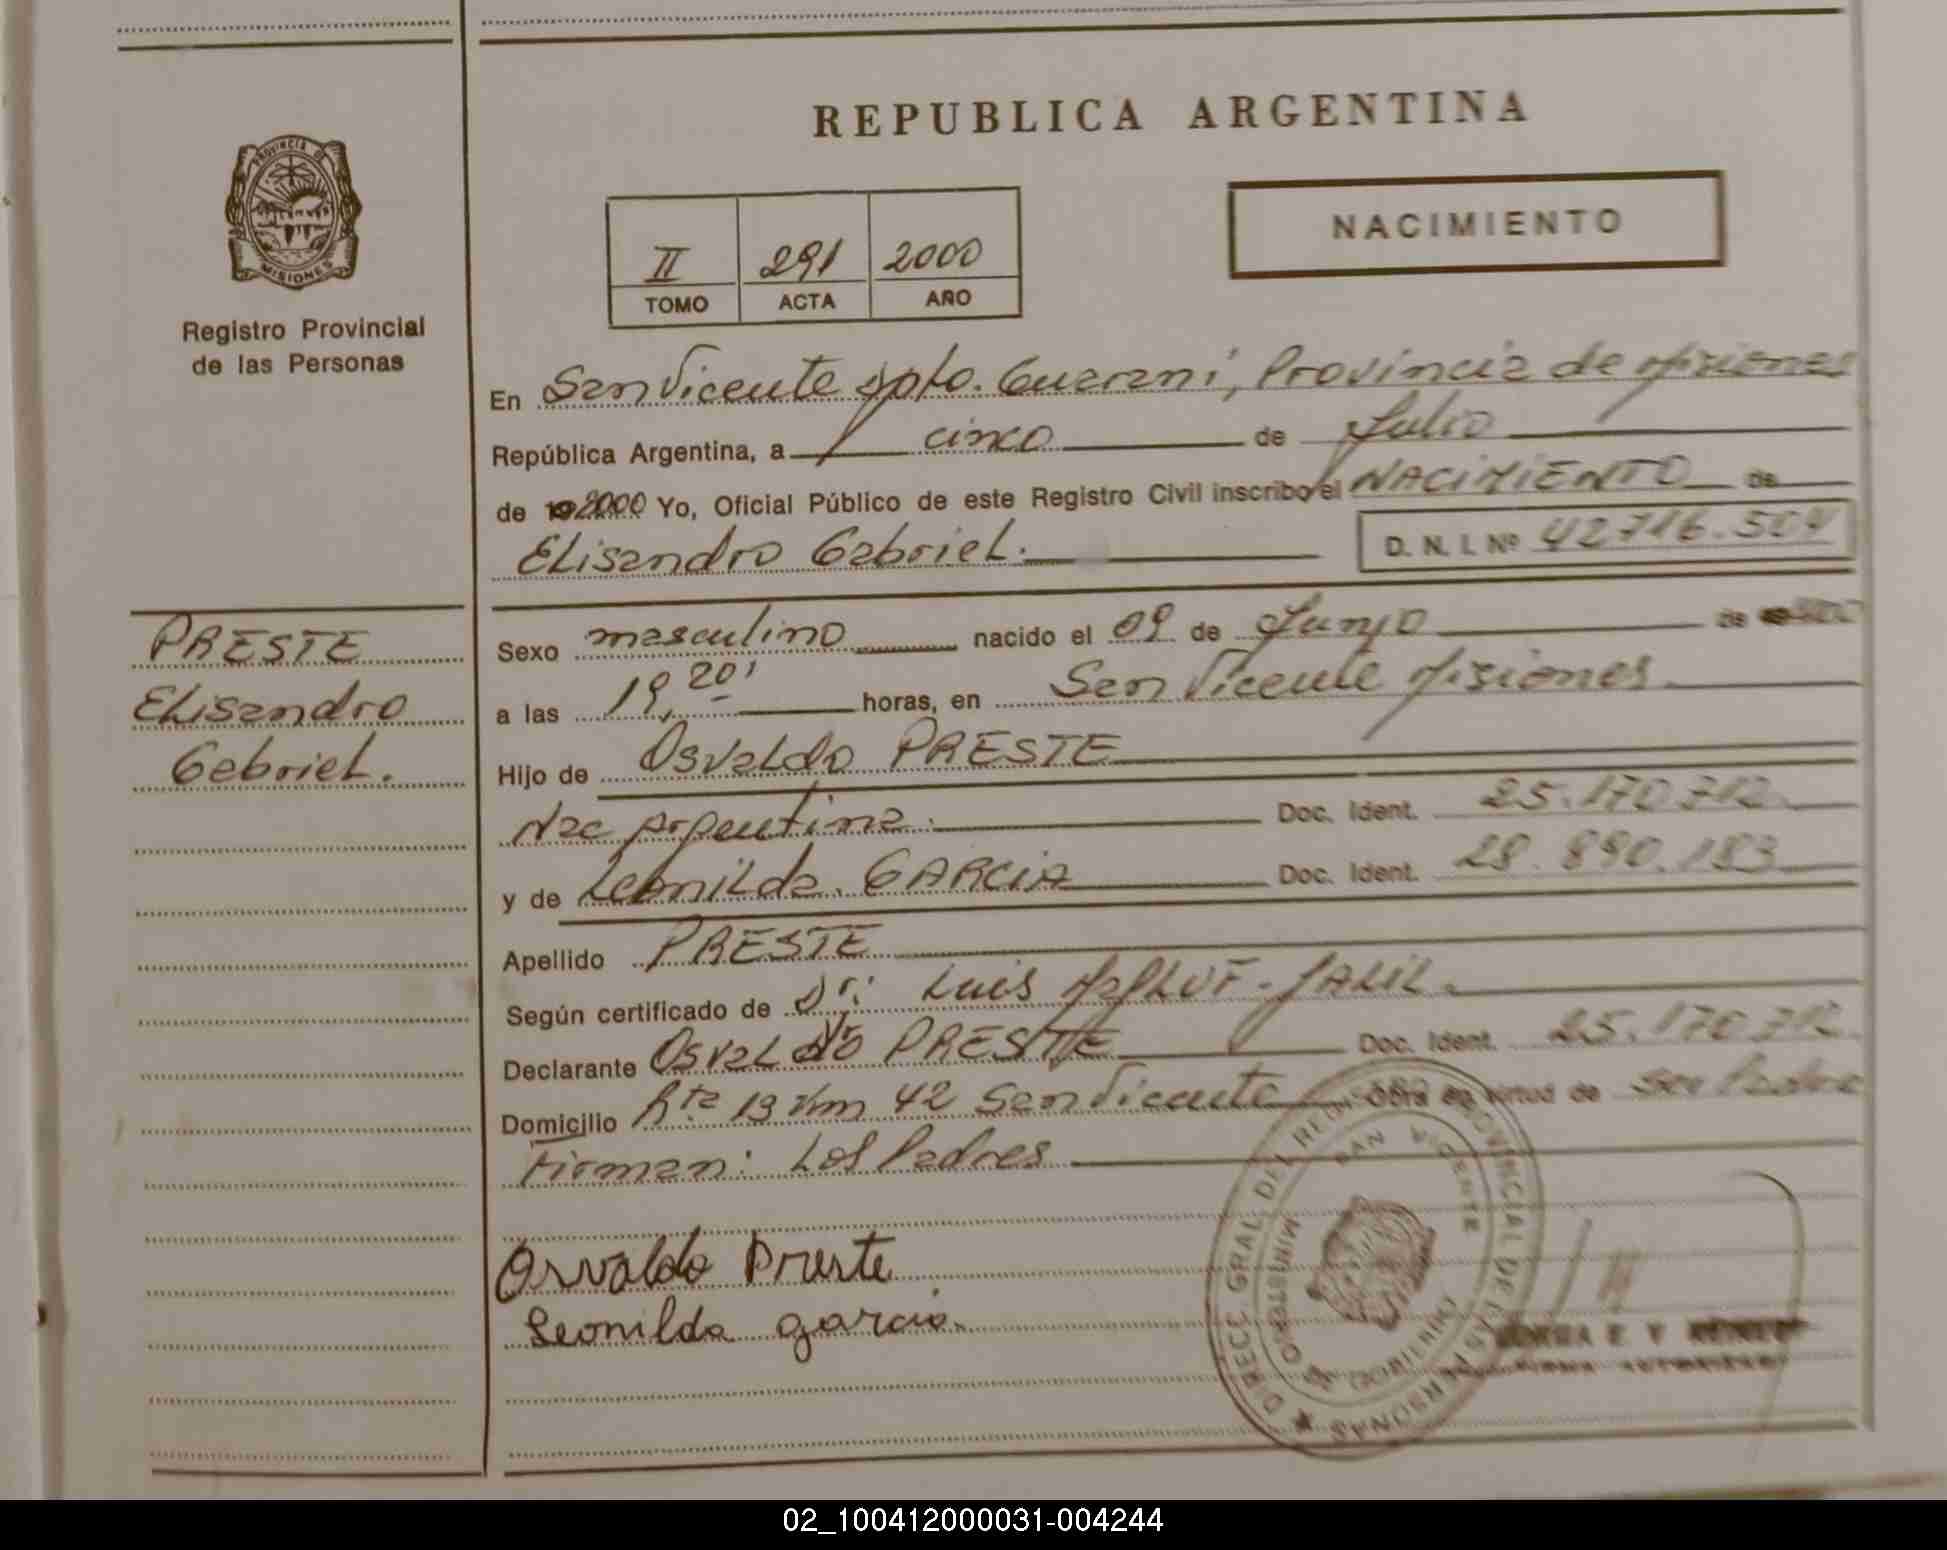 REPUBLICA ARGENTINA
PROVINCIA DE
MISIONES
Registro Provincial
de las Personas
II 291 2000
TOMO ACTA AÑO
NACIMIENTO
En San Vicente Dpto. Guarani, Provincia de Misiones
República Argentina, a cinco de Julio
de 2000 Yo, Oficial Público de este Registro Civil inscribo el NACIMIENTO de
Elisandro Gabriel.
D. N. I. Nº 42716.504
PRESTE
Elisandro
Gabriel.
Sexo masculino nacido el 09 de Junio de 2000
a las 19,20' horas, en San Vicente Misiones
Hijo de Osvaldo PRESTE
Nac Argentina. Doc. Ident. 25.170.712
y de Leonilda. GARCIA Doc. Ident. 28.890.183
Apellido PRESTE
Según certificado de Dr: Luis JALIL.
Declarante Osvaldo PRESTE Doc. Ident. 25.170.712
Domicilio Rta 13 Km 42 San Vicente Obra en virtud de ser Padre
Firman: Los Padres
Osvaldo Preste
Leonilda garcia.
DIRECC. GRAL. DEL REG. PROVINCIAL DE LAS PERSONAS
SAN VICENTE
MINISTERIO DE GOBIERNO
02_100412000031-004244